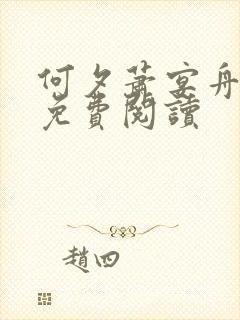 何夕蕭宴舟
免費閱讀
趙四